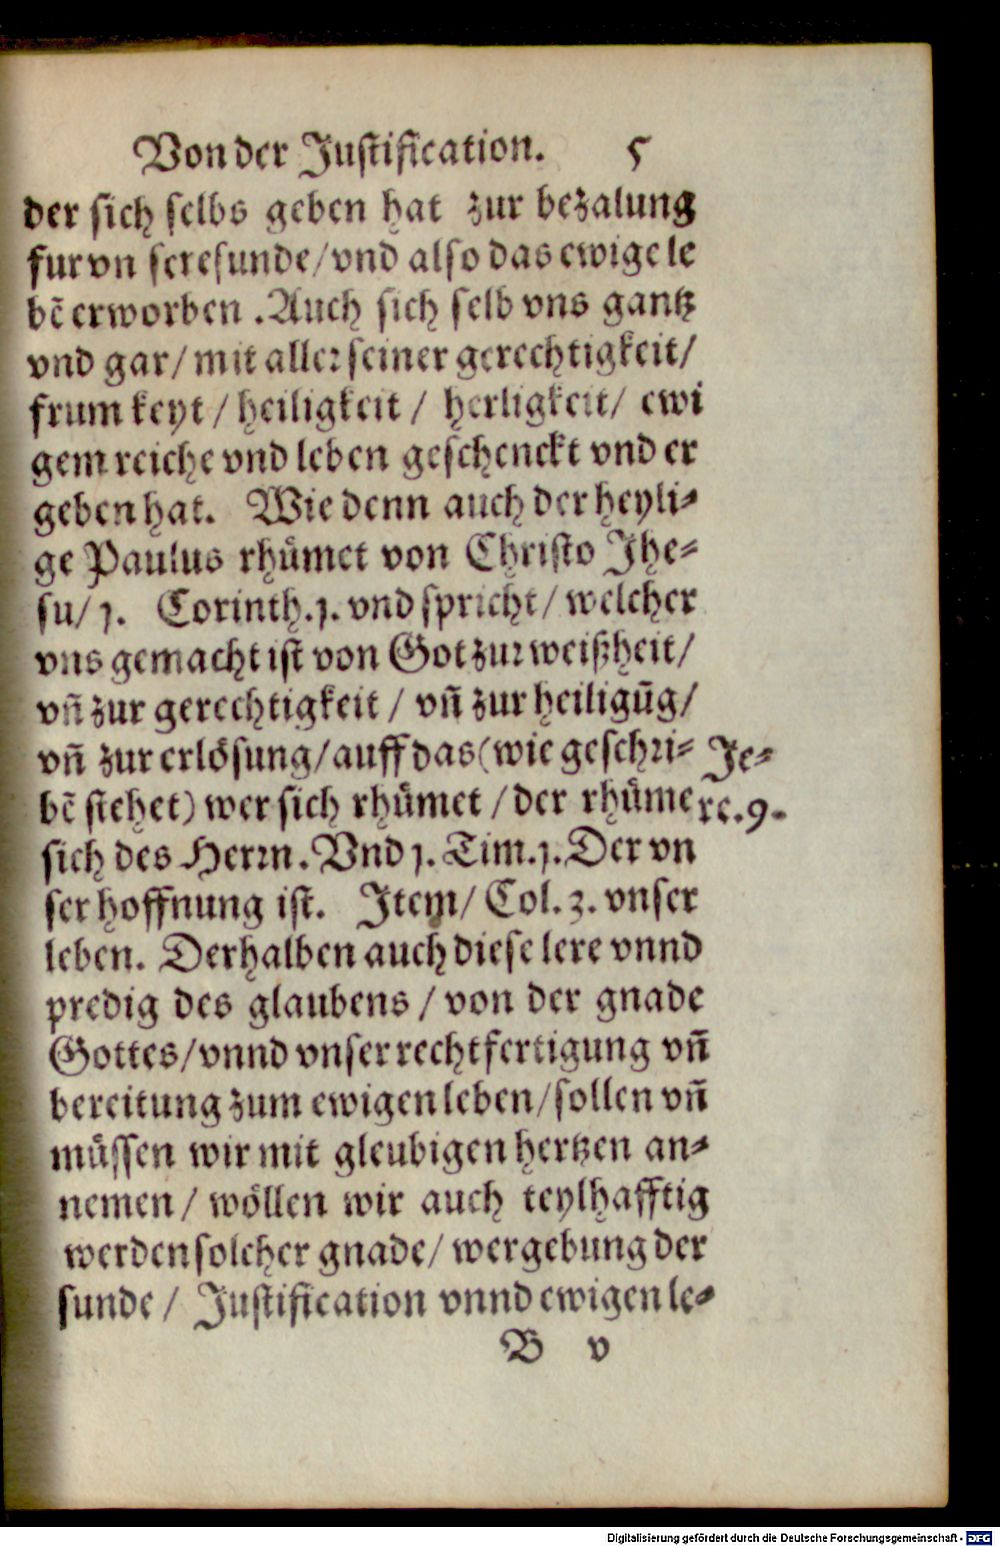 Von der Justification. 5
der sich selbs geben hat zur bezalung
fur vn sere sunde/ vnd also das ewige le
bē erworben . Auch sich selb vns gantz
vnd gar/ mit aller seiner gerechtigkeit/
frumkeyt / heiligkeit / herligkeit/ ewi
gem reiche vnd leben geschenckt vnd er
geben hat. Wie denn auch der heyli-
ge Paulus rhůmet von Christo Jhe-
su/ 1. Corinth.1. vnd spricht/ welcher
vns gemacht ist von Got zur weißheit/
vñ zur gerechtigkeit / vñ zur heiligūg/
vñ zur erlösung/ auff das (wie geschri- Je-
bē stehet) wer sich rhůmet / der rhůme re.9.
sich des Herrn. Vnd 1. Tim.1. Der vn
ser hoffnung ist. Item/ Col. 3. vnser
leben. Derhalben auch diese lere vnnd
predig des glaubens / von der gnade
Gottes/ vnnd vnser rechtfertigung vñ
bereitung zum ewigen leben/ sollen vñ
můssen wir mit gleubigen hertzen an-
nemen / wöllen wir auch teylhafftig
werden solcher gnade/ wergebung der
sunde / Justification vnnd ewigen le-
B v
Digitalisierung gefördert durch die Deutsche Forschungsgemeinschaft - DFG